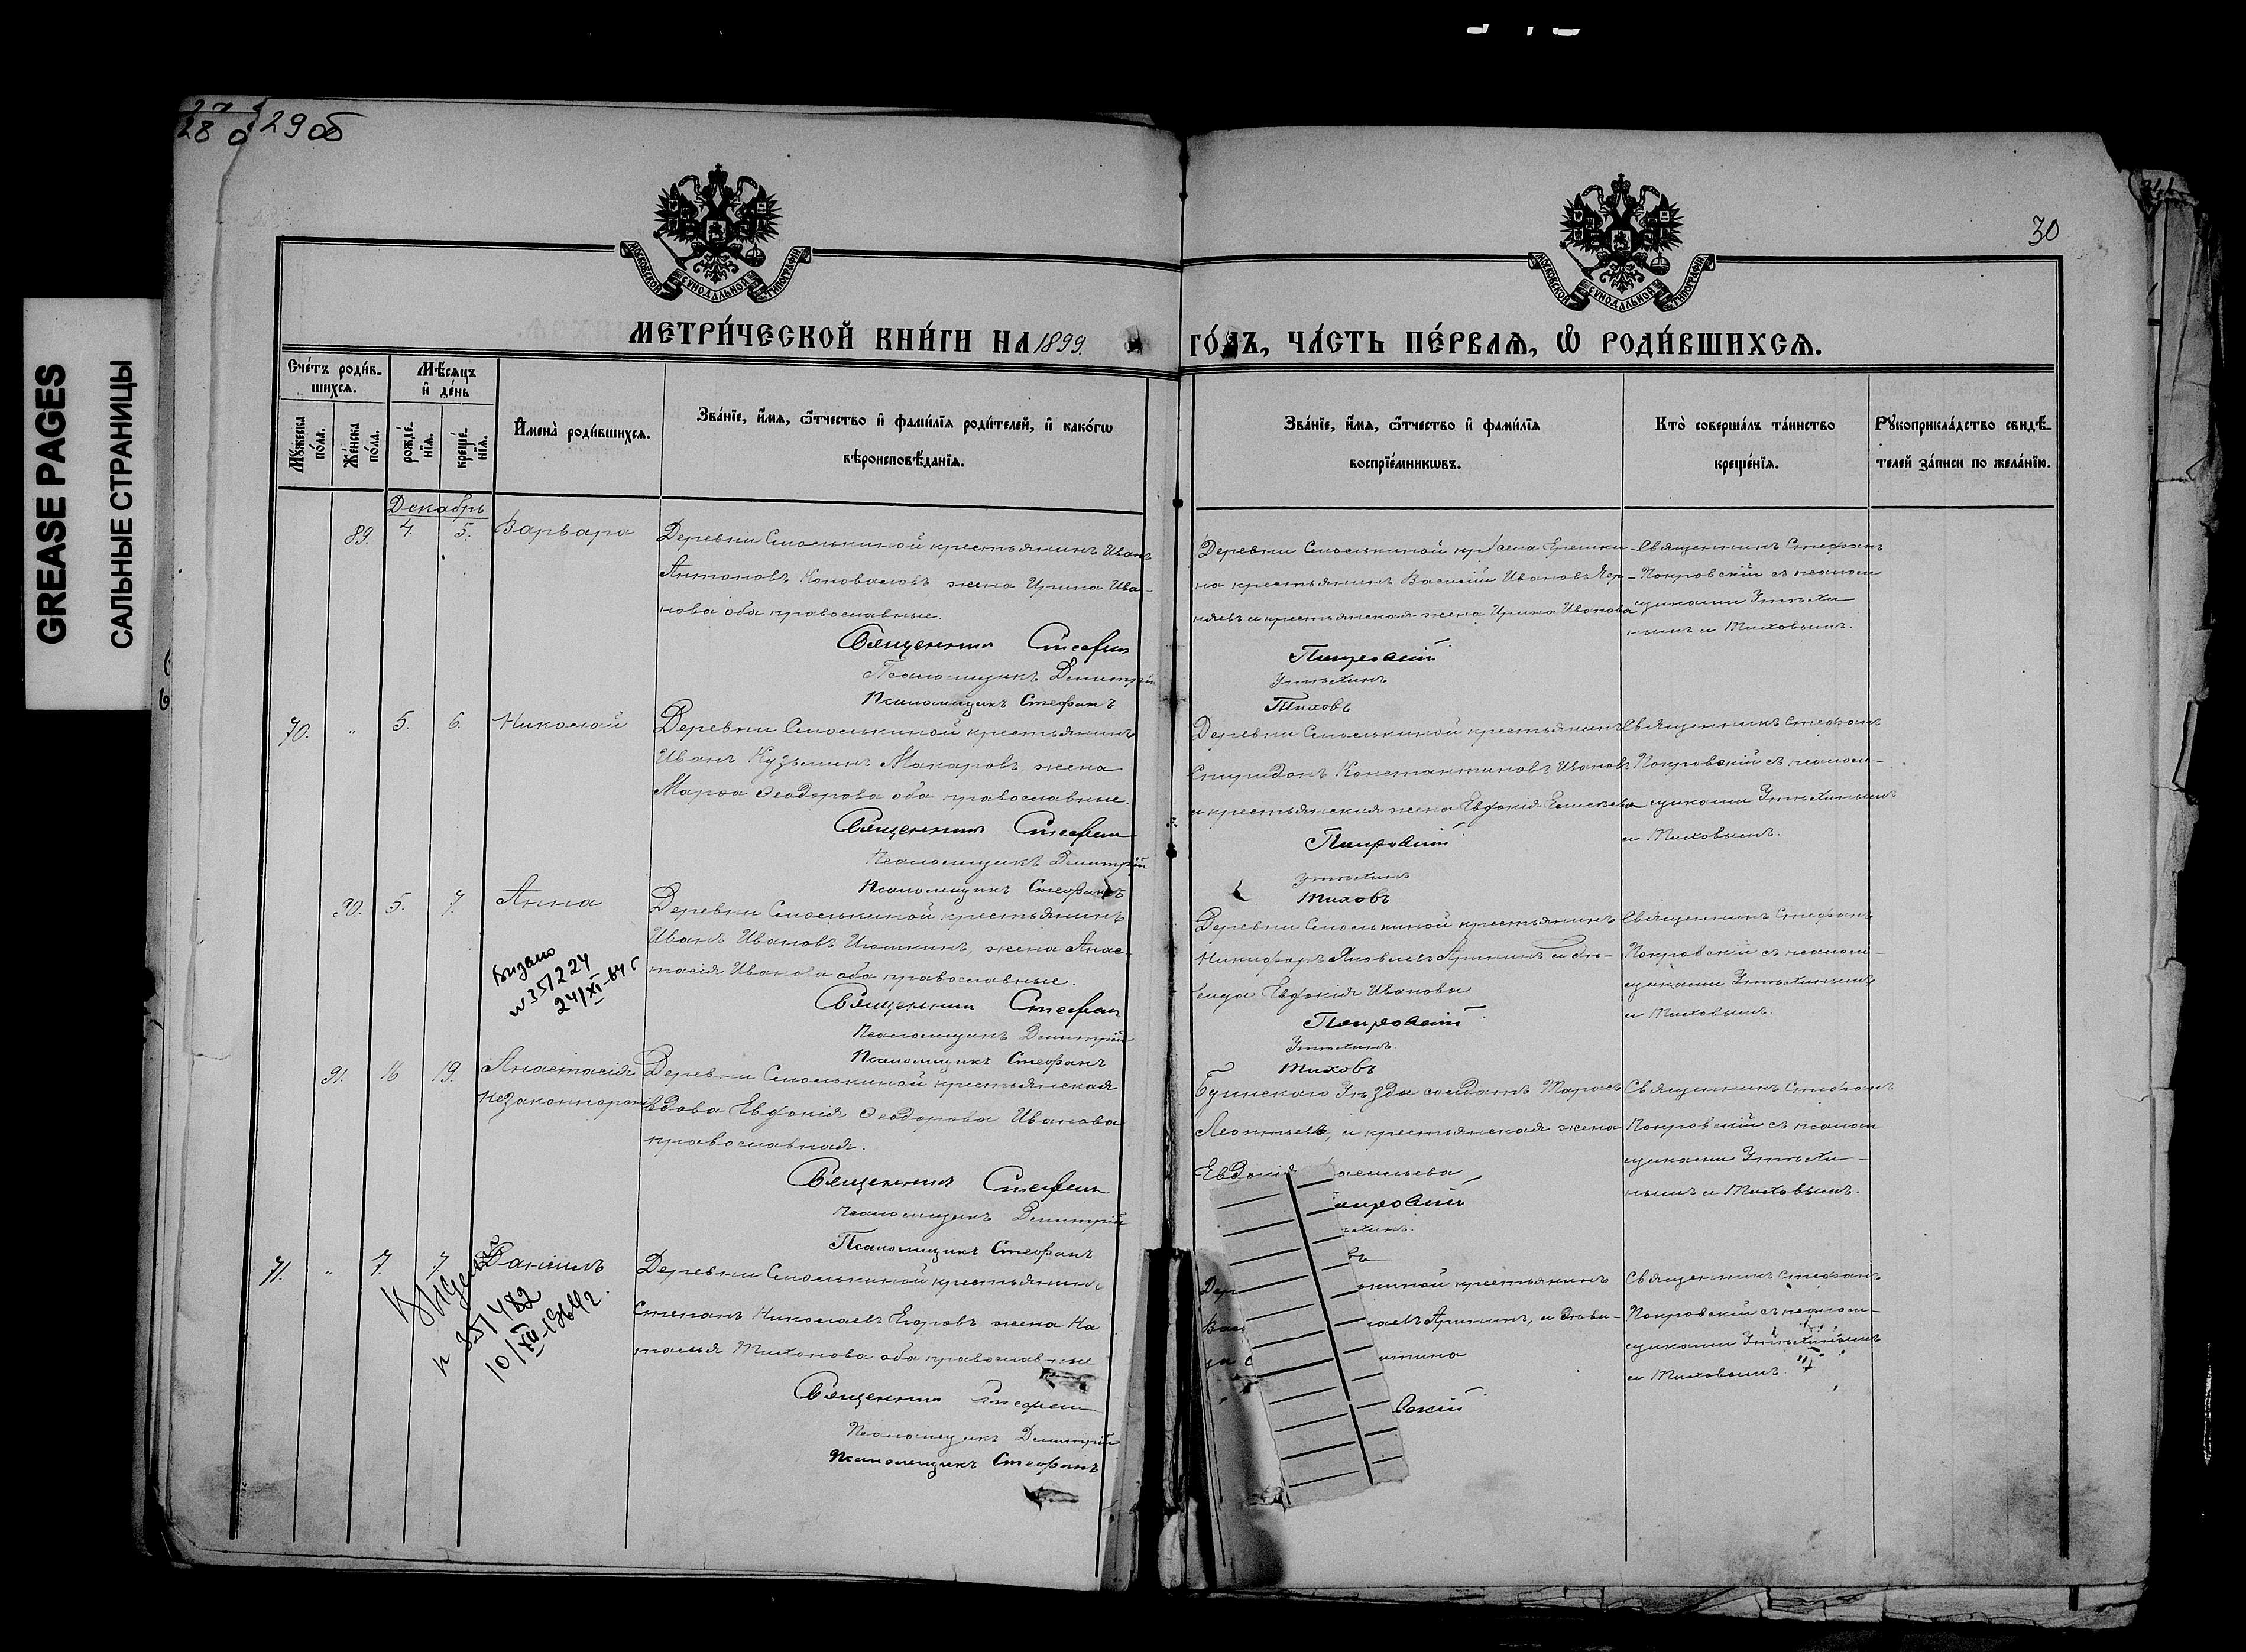 GREASE PAGES
САЛЬНЫЕ СТРАНИЦЫ
27
28 о
29 об
30
МОСКОВСКОЙ СѴНОДАЛЬНОЙ ТИПОГРАФІИ
МОСКОВСКОЙ СѴНОДАЛЬНОЙ ТИПОГРАФІИ
МЕТРИ́ЧЕСКОЙ КНИ́ГИ НА 1899.
ГО́ДЪ, ЧА́СТЬ ПЕ́РВАѦ, Ѡ҆ РОДИ́ВШИХСѦ.
Сче́тъ роди́в-
шихсѧ.
Мѣ́сѧцъ
и҆ де́нь
Мꙋ́жеска
по́ла.
Же́нска
по́ла.
рожде́-
нїѧ.
креще́-
нїѧ.
И҆мена̀ роди́вшихсѧ.
Зва́нїе, и҆́мѧ, ѻ҆́тчество и҆ фами́лїѧ роди́телей, и҆ како́гѡ
вѣроисповѣ́данїѧ.
Зва́нїе, и҆́мѧ, ѻ҆́тчество и҆ фами́лїѧ
воспрїе́мникѡвъ.
Кто̀ соверша́лъ та́инство
креще́нїѧ.
Рꙋкоприкла́дство свидѣ́-
телей за́писи по жела́нїю.
Декабрь
89. 4. 5. Варвара
Деревни Смолькиной крестьянинъ Иванъ
Антоновъ Коноваловъ жена Ирина Ива-
нова оба православные.
Священникъ Стефан
Псаломщикъ Димитрій
Псаломщикъ Стефанъ
Деревни Смолькиной
на крестьянинъ Василій Ивановъ
и крестьянская жена Ирина Иванова
Покровскій
Утѣхинъ
Тиховъ
Священникъ Стефанъ
Покровскій съ псалом
щиками Утѣхи
нымъ и Тиховымъ.
70. " 5. 6. Николай
Деревни Смолькиной крестьянинъ
Иванъ Кузьминъ Макаровъ, жена
Марѳа Ѳеодорова оба православные.
Священникъ Стефан
Псаломщикъ Димитрій
Псаломщикъ Стефанъ
Деревни Смолькиной крестьянинъ
Спиридонъ Константиновъ Ивановъ
и крестьянская жена Евдокія
Покровскій
Утѣхинъ
Тиховъ
Священникъ Стефанъ
Покровскій съ псалом-
щиками Утѣхинымъ
и Тиховымъ.
90. 5. 7. Анна
№ 351224
24/XI-64 г
Деревни Смолькиной крестьянинъ
Иванъ Ивановъ Июшкинъ, жена Анас-
тасія Иванова оба православные.
Священникъ Стефан
Псаломщикъ Димитрій
Псаломщикъ Стефанъ
Деревни Смолькиной крестьянинъ
Никифоръ Яковлевъ Арининъ и дѣ-
вица Евдокія Иванова
Покровскій
Утѣхинъ
Тиховъ
Священникъ Стефанъ
Покровскій съ псалом-
щиками Утѣхинымъ
и Тиховымъ.
91. 16 19. Анастасія
незаконнорож
Деревни Смолькиной крестьянская
вдова Евдокія Ѳеодорова Иванова
православная.
Священникъ Стефан
Псаломщикъ Димитрій
Псаломщикъ Стефанъ
Буинскаго Уѣзда солдатъ Тарасъ
Леонтьевъ, и крестьянская жена
Евдокія асильева
кровскій
ѣхинъ.
въ
Священникъ Стефанъ
Покровскій съ псалом
щиками Утѣхи-
нымъ и Тиховымъ.
71. " 7. 7. Даніилъ
№ 351482
10/XII-1964г.
Деревни Смолькиной крестьянинъ
Степанъ Николаевъ Егоровъ жена На
талья Тихонова оба православные
Священникъ Стефан
Псаломщикъ Димитрій
Псаломщикъ Стефанъ
Дер киной крестьянинъ
Вас аевъ Арининъ, и дѣви-
ца итина
вскій
Священникъ Стефанъ
Покровскій съ псалом-
щиками Утѣхинымъ
и Тиховымъ.